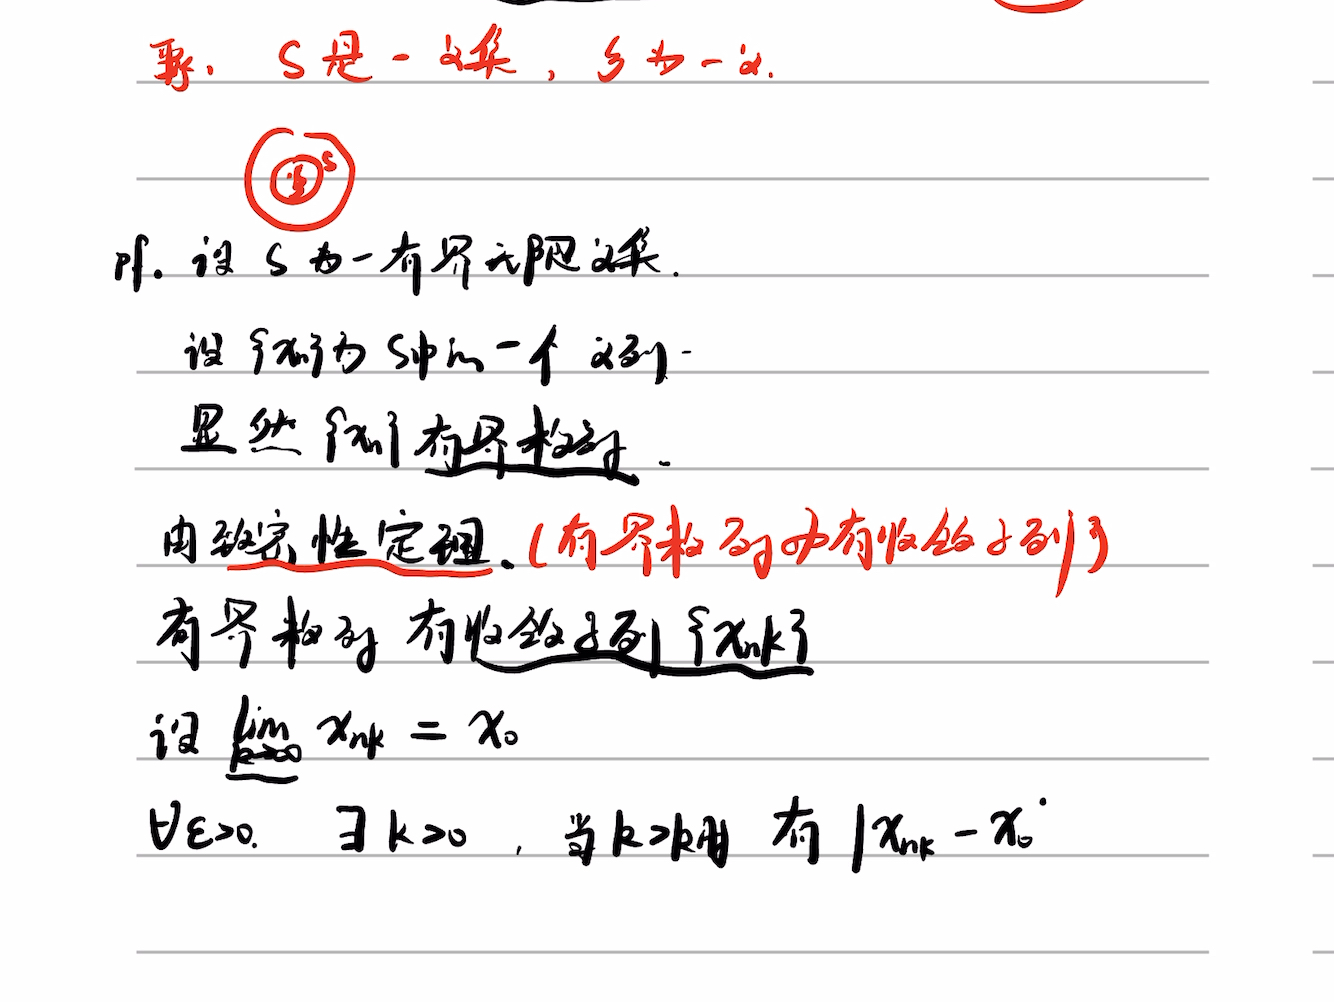 聚. S是一点集, ξ为一点.
ξ S
pf. 设 S 为一有界无限点集.
设 {xn}为 S中的一个 点列.
显然 {xn} 有界数列.
由致密性定理. (有界数列必有收敛子列)
有界数列 有收敛子列 {xnk}
设 lim k→∞ xnk = x0
∀ε>0. ∃ k>0 , 当 k>k时 有 |xnk - x0